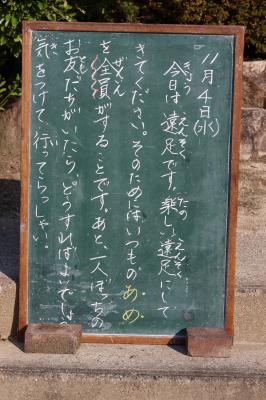 11月4日(水)
きょう えんそく たの えんそく
今日は遠足です。楽しい遠足にして
きてください。そのためにはいつものあめ
ぜんいん
を全員がすることです。あと、一人ぼっちの
とも
お友だちがいたら、どうすればよいでしょう
き
気をつけて行ってらっしゃい。